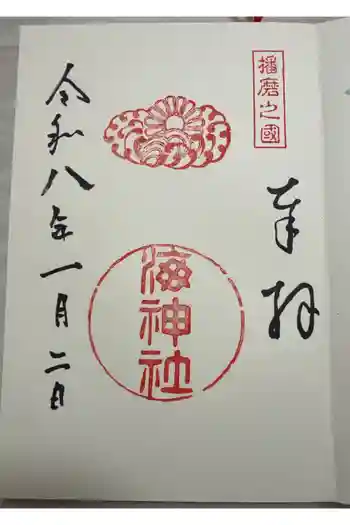 播磨之國
奉拝
海神社
令和八年一月二日